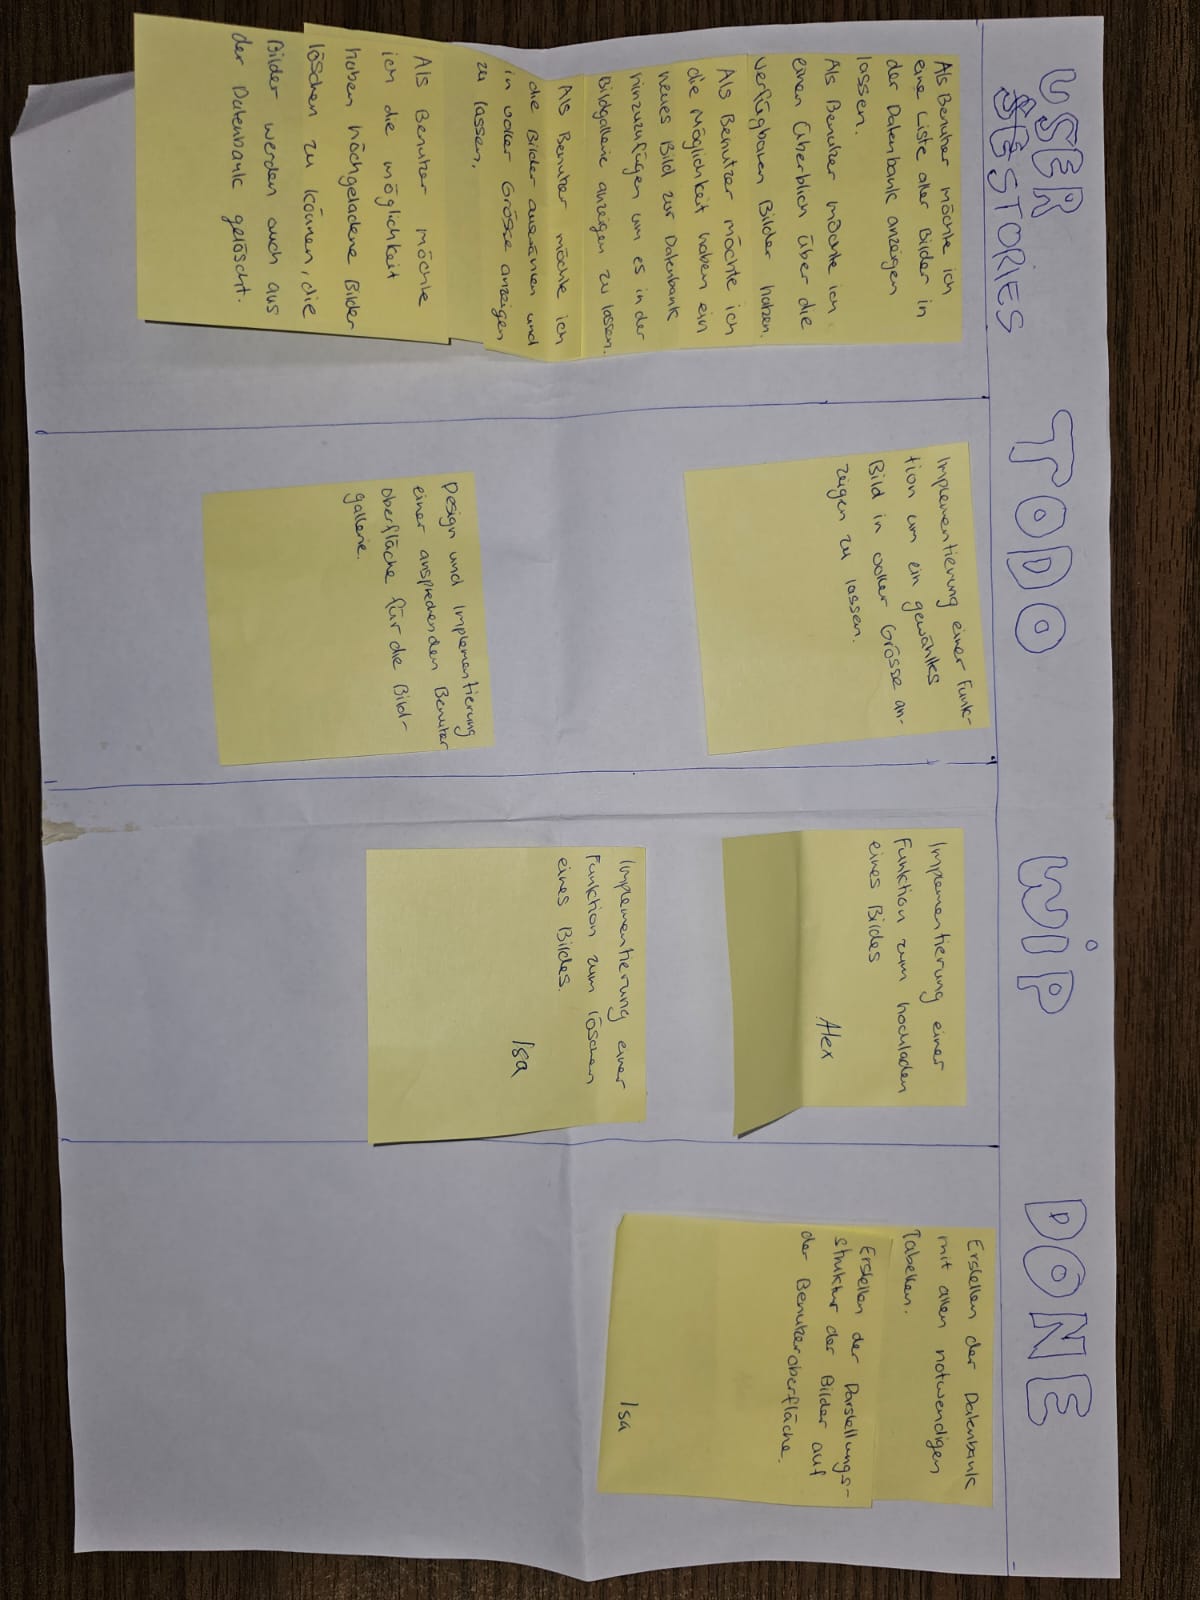 USER
STORIES
TODO
WiP
DONE
Als Benutzer möchte ich
eine Liste aller Bilder in
der Datenbank anzeigen
lassen.
Als Benutzer möchte ich
einen Überblich über die
verfügbaren Bilder haben.
Als Benutzer möchte ich
die Möglichkeit haben ein
neues Bild zur Datenbank
hinzuzufügen um es in der
Bildgallerie anzeigen zu lassen.
Als Benutzer möchte ich
die Bilder auswählen und
in voller Grösse anzeigen
zu lassen.
Als Benutzer möchte
ich die möglichkeit
haben höchgeladene Bilder
löschen zu können, die
Bilder werden auch aus
der Datenbank gelöscht.
Implementierung einer Funk-
tion um ein gewähltes
Bild in voller Grösse an-
zeigen zu lassen.
Design und Implementierung
einer ansprechenden Benutzer
oberfläche für die Bild-
gallerie.
Implementierung einer
Funktion zum hochladen
eines Bildes
Alex
Implementierung einer
Funktion zum löschen
eines Bildes.
Isa
Erstellen der Datenbank
mit allen notwendigen
Tabellen.
Erstellen der Darstellungs-
struktur der Bilder auf
der Benutzeroberfläche.
Isa